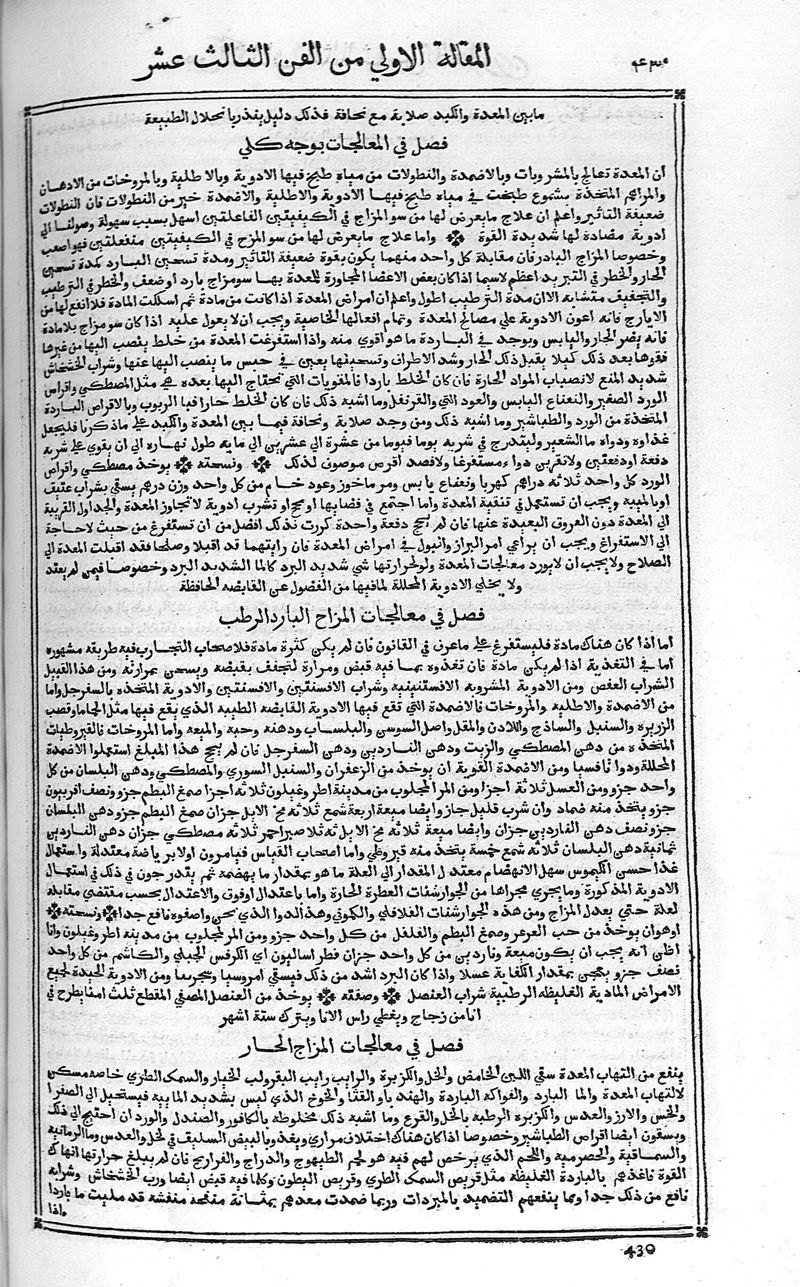 المقالة الاولي من الفن الثالث عشر
٤٣٠
مابين المعدة والكبد صلابة مع نحافة فذلك دليل ينذر بانحلال الطبيعة
فصل في المعالجات بوجه كلي
ان المعدة تعالج بالمشروبات وبالاضمدة والنطولات من مياه طبخ فيها الادوية وبالاطلية وبالمروخات من الادهان
والمراهم المتخذة بشموع طبخت في مياه طبخ فيها الادوية والاطلية والاضمدة خير من النطولات فان النطولات
ضعيفة التاثير واعلم ان علاج مايعرض لها من سو المزاج في الكيفيتين الفاعلتين اسهل بسبب سهولة وصولنا الي
ادوية مضادة لها شديدة القوة واما علاج مايعرض لها من سو المزج في الكيفيتين منفعلتين فهو اصعب
وخصوصا المزاج البادر فان مقابلة كل واحد منهما يكون بقوة ضعيفة التاثير ومدة تسخين البارد كمدة تسخين
الحار والخطر في التبريد اعظم لاسيما اذا كان بعض الاعضا المجاورة للمعدة بها سومزاج بارد اوضعف والخطر في الترطيب
والتجفيف متشابه الاان مدة الترطيب اطول واعلم ان امراض المعدة اذا كانت من مادة ثم اسكلت المادة فلا انفع لها من
الايارج فانه اعون الادوية علي مصالح المعدة وتمام افعالها الخاصية ويجب ان لايعول عليه اذا كان سو مزاج بلامادة
فانه يضر الحار واليابس ويوجد في الباردة ما هو اقوي منه واذا استفرغت المعدة من خلط ينصب اليها من غيرها
فقوها بعد ذلك كيلا يقبل ذلك الحار وشد الاطران وتسخينها يعين في حبس ما ينصب اليها عنها وشراب الخشخاش
شديد المنع لانصباب المواد الحارة فان كان الخلط باردا فالمقويات التي تحتاج اليها بعده هي مثل المصطكي واقراص
الورد الصغير والنعناع اليابس والعود الني والقرنفل وما اشبه ذلك فان كان الخلط حارا فبا الربوب وبالاقراص الباردة
المتخذة من الورد والطباشير وما اشبه ذلك ومن وجد صلابة ونحافة فيما بين المعدة والكبد علي ما ذكرنا فليجعل
غذاوه ودواه ما الشعير وليتدرج في شربه يوما فيوما من عشرة الي عشرين الي مايه طول نهاره الي ان يقوي علي شربه
دفعة اودفعتين ولايقربن دواء مستفرغا ولافصد اقرص موصوف لذلك ونسخته يوخذ مصطكي واقراص
الورد كل واحد ثلاثه دراهم كهربا ونعناع يابس ومر ماخوز وعود خام من كل واحد وزن درهم يسقي بشراب عتيق
اوبالميبه ويجب ان تستعمل في تنقية المعدة واما اجتمع في فضايها اوبج او تشرب ادوية لاتجاوز المعدة والجداول القريبة
الي المعدة دون العروق البعيدة عنها فان لم ينجح دفعة واحدة كررت فذلك افضل من ان تستفرغ من حيث لاحاجة
الي الاستفراغ ويجب ان يراعي امر البراز والبول في امراض المعدة فان رايتهما قد اقبلا وصلحا فقد اقبلت المعدة الي
الصلاح ولايجب ان لايورد معالجات المعدة ولولحرارتها شي شديد البرد كالما الشديد البرد وخصوصا فيمن لم يعتد
ولا يخلي الادوية المحللة لمافيها من الفضول عن القابضه الحافظة
فصل في معالجات المزاح البارد الرطب
اما اذا كان هناك مادة فليستفرغ علي ماعرف في القانون فان لم يكن كثرة مادة فلاصحاب التجارب فيه طريقه مشهوره
اما في التغذية اذا لم يكن مادة فان تغذوه بما فيه قبض ومرارة لتجفف بقبضه ويسخن بمرارته ومن هذا القبيل
الشراب العفص ومن الادوية المشروبه الافسنتينيه وشراب الافسنتين والافسنتين والادوية المتخذه بالسفرجل واما
من الاضمدة والاطلية والمروخات فالاضمدة التي تقع فيها الادوية القابضة الطيبه الذي يقع فيها مثل الحاما وقصب
الزريره والسنبل والساذج واللادن والمقل واصل السوسي والبلسان ودهنه وحبه والميعه واما المروخات فالقيروطيات
المتخذه من دهن المصطكي والزيت ودهن الناردين ودهن السفرجل فان لم ينجح هذا المبلغ استعملوا الاضمدة
المحللة ودوا نافسيا ومن الاضمدة القوية ان يوخذ من الزعفران والسنبل السوري والمصطكي ودهن البلسان من كل
واحد جزو ومن العسل ثلاثة اجزا ومن المر المجلوب من مدينة اطروغيلون ثلاثه اجزا صمغ البطم جزو ونصف افربيون
جزو يتخذ منه ضماد وان شرب قليل جاز وايضا ميعة اربعة شمع ثلاثه مخ الابل جزان صمغ البطم جزو دهن البلسان
جزو نصف دهن الناردين جزان وايضا ميعة ثلاثه مخ الابل ثه ثلا صبر احمر ثلاثه مصطكي جزان دهن الناردين
ثمانية دهن البلسان ثلاثه شمع خمسة يتخذ منه قيروطي واما اصحاب القياس فيامرون اولا برياضة معتدلة واستعمال
غذا حسن الكيموس سهل الانهضام معتدل المقدار الي العلة ما هو بمقدار ما يهضمه ثم يتدرجون في ذلك في استعمال
الادوية المذكورة ومايجري مجراها من الجوارشنات العطرة الحارة واما باعتدال اوفوق والاعتدال بحسب مقتضي مقابله
لعلة حتي يعدل المزاج ومن هذه الجوارشنات الفلافلي والكموني وهذ الدوا الذي نحن واصفوه نافع جدا ونسخته
اوهوان يوخذ من حب العرعر وصمغ البطم والفلفل من كل واحد جزو ومن المر المجلوب من مدينه اطروغيلون وانا
اظن انه يجب ان يكون ميعة وناردين من كل واحد جزان فطر اساليون اي الكرفس الجبلي والكاشم من كل واحد
نصف جزو يعجن بمقدار الكفاية عسلا واذا كان البرد اشد من ذلك فيسقي امروسيا وسجرينيا ومن الادوية الجيدة لجميع
الامراض المادية الغليظه الرطبية شراب العنصل وصفته يوخذ من العنصل المصفي المقطع ثلث امنا يطرح في
انا من زجاج ويغطي راس الانا ويترك ستة اشهر
فصل في معالجات المزاج الحار
ينفع من التهاب المعدة سقي اللبن الحامض والخل والكزبرة والرايب رايب البقر ولب الخيار والسمك الطري خاصه مسكن
لالتهاب المعدة والما البارد والفواكه الباردة والهندباو القثا والخوخ الذي ليس بشديد المايه فيستحيل الي الصفرا
والخس والارز والعدس والكزبره الرطبه بالخل والقرع وما اشبه ذلك مخلوطه بالكافور والصندل والورد ان احتيج الي ذلك
ويسقون ايضا اقراص الطباشير وخصوصا اذا كان هناك اختلاف مراري ويغذو بالبيض السليق في لخل والعدس وما الرمانية
والسماقية والحصرمية واللحم الذي يرخص لهم فيه هو لحم الطيهوج والدراج والفراريج فان لم يبلغ حرارتها انهاك
القوة فاغذهم بالباردة الغليظه مثل قريص السمك الطري وقريص البطون وكلما فيه قبض ايضا ورب الخشخاش وشرابه
نافع من ذلك جدا ومما ينفعهم التضميد بالمبردات وربما ضمدت معدهم بمثانة منفخه منفشه قد مليت ما باردا
واذا
430